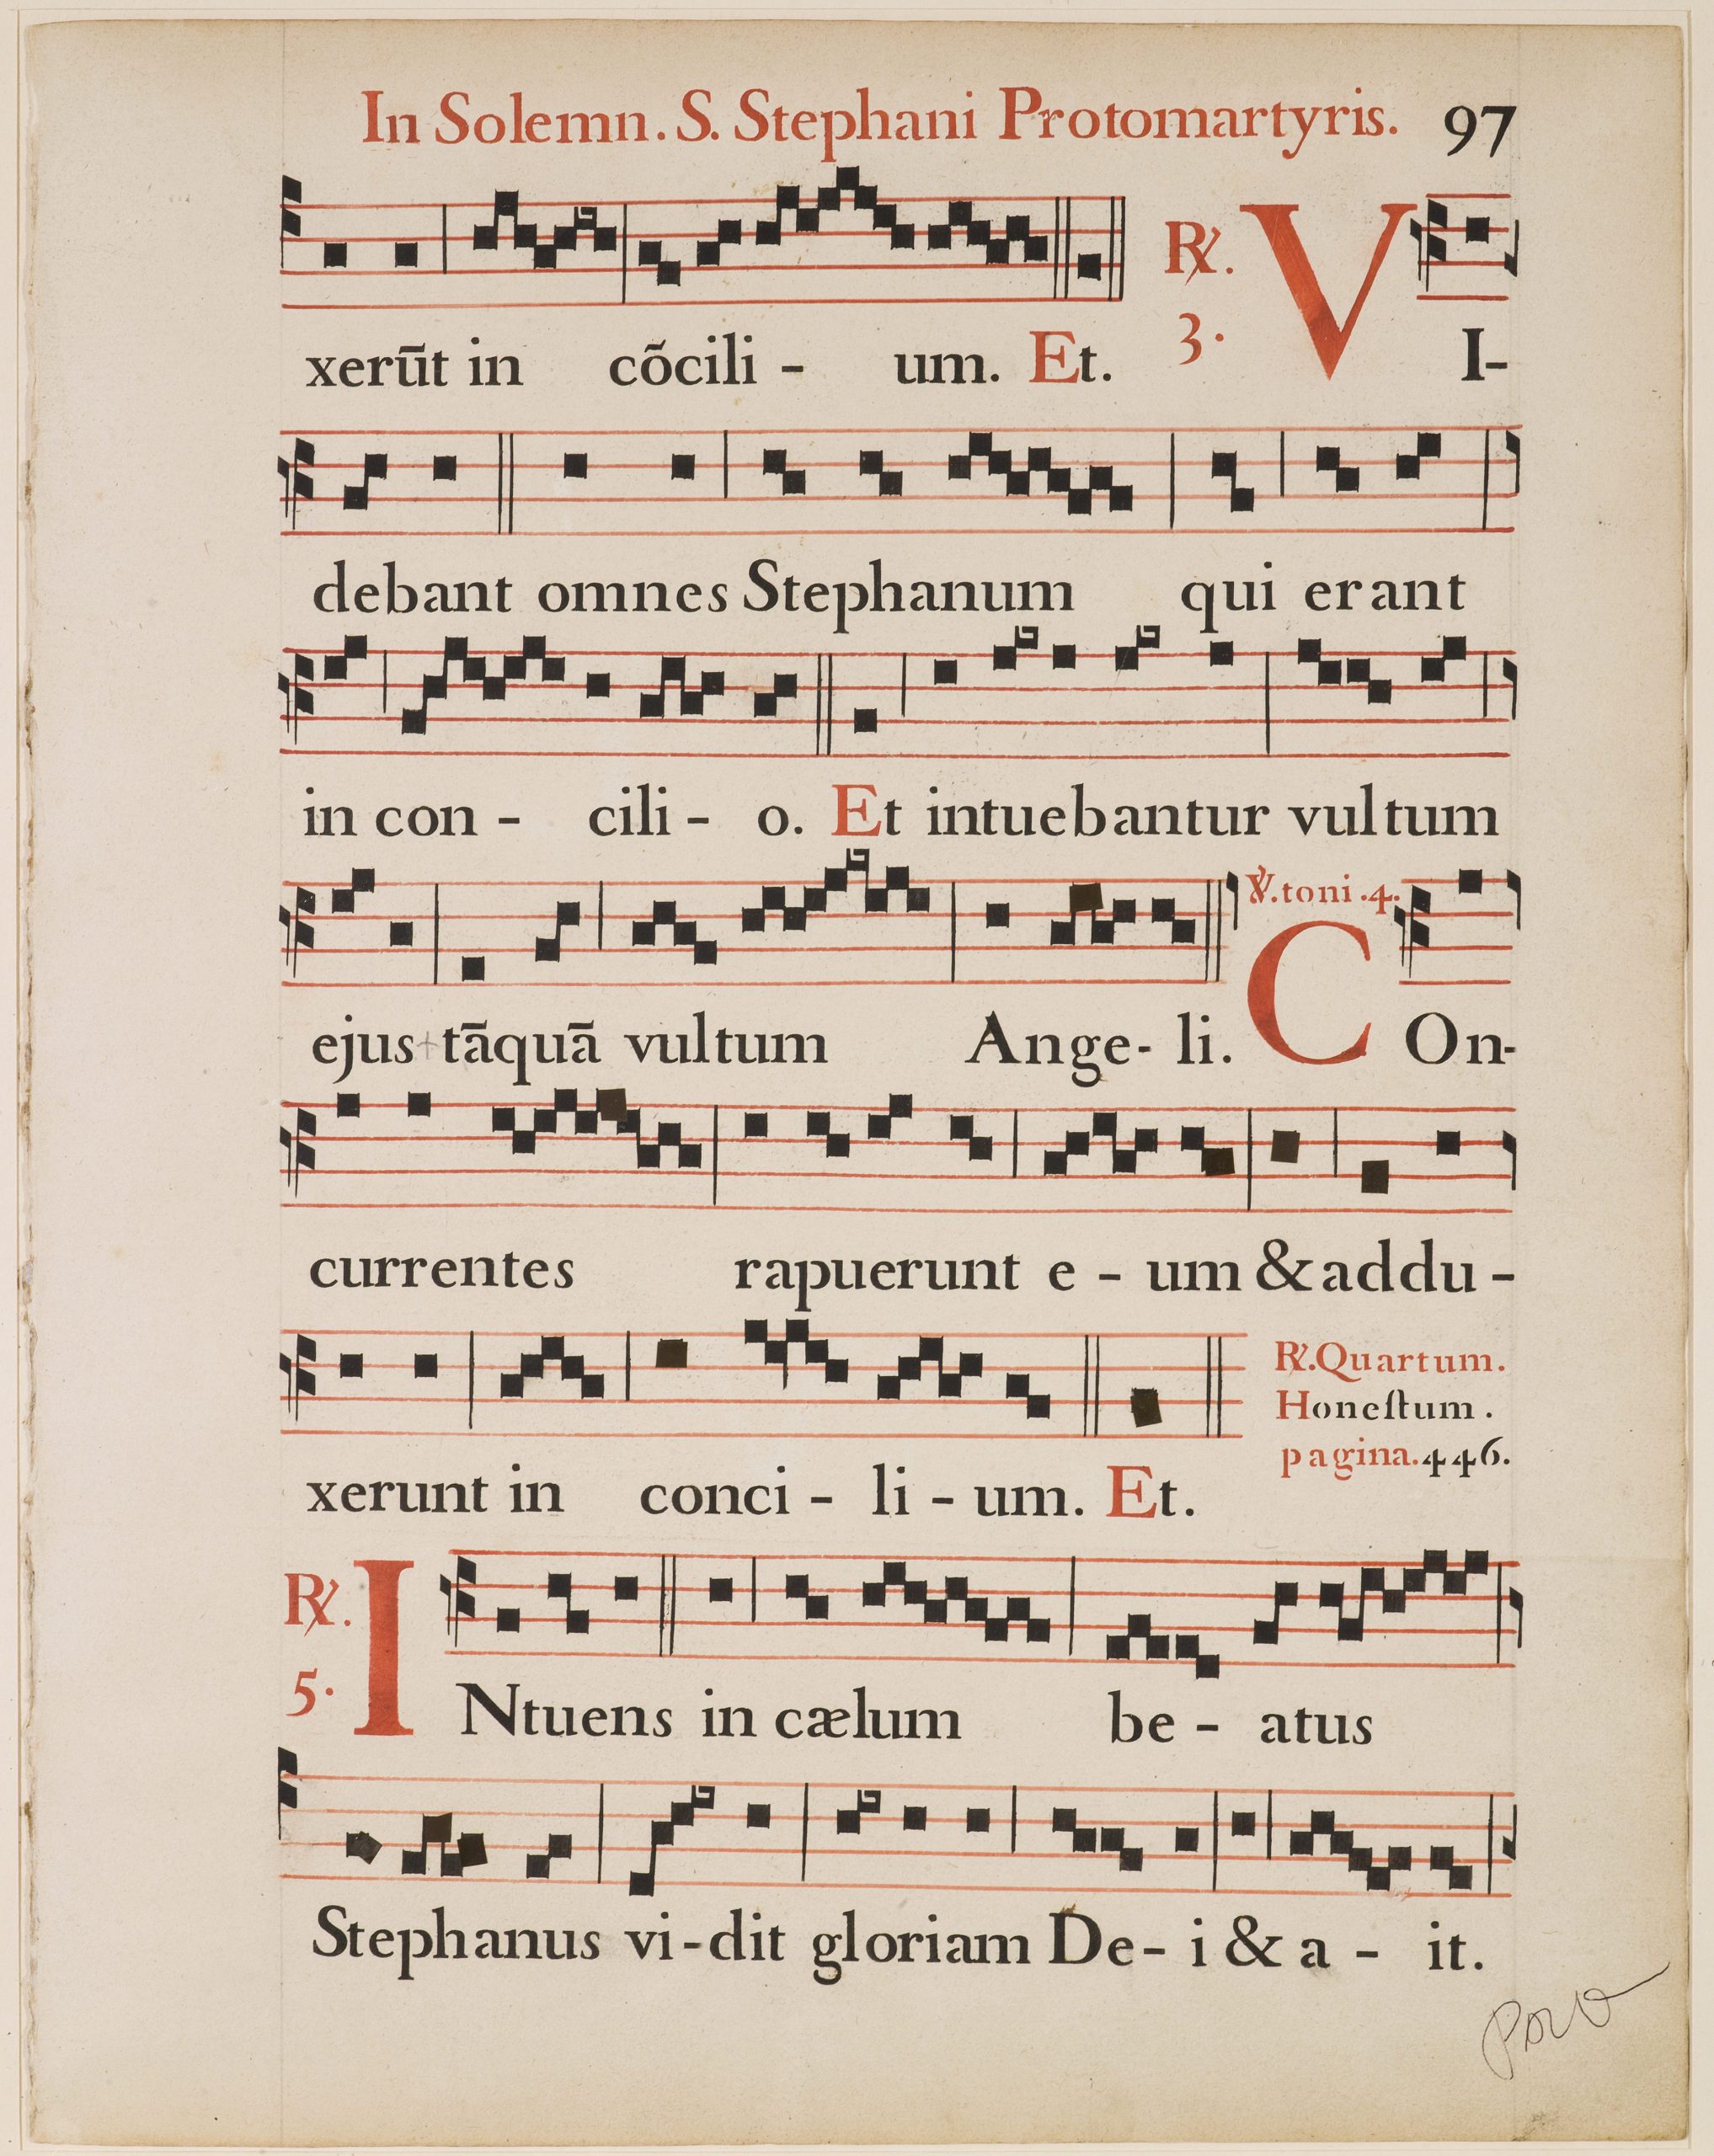 In Solemn. S. Stephani Protomartyris. 97
xerūt in cõcili - um. Et. ℟. 3. VI-
debant omnes Stephanum qui erant
in con - cili - o. Et intuebantur vultum
℣. toni. 4.
ejus tāquā vultum Ange- li. COn-
currentes rapuerunt e - um & addu -
℟. Quartum.
Honeſtum.
pagina. 446.
xerunt in conci - li - um. Et.
℟. 5. INtuens in cælum be - atus
Stephanus vi - dit gloriam De- i & a - it.